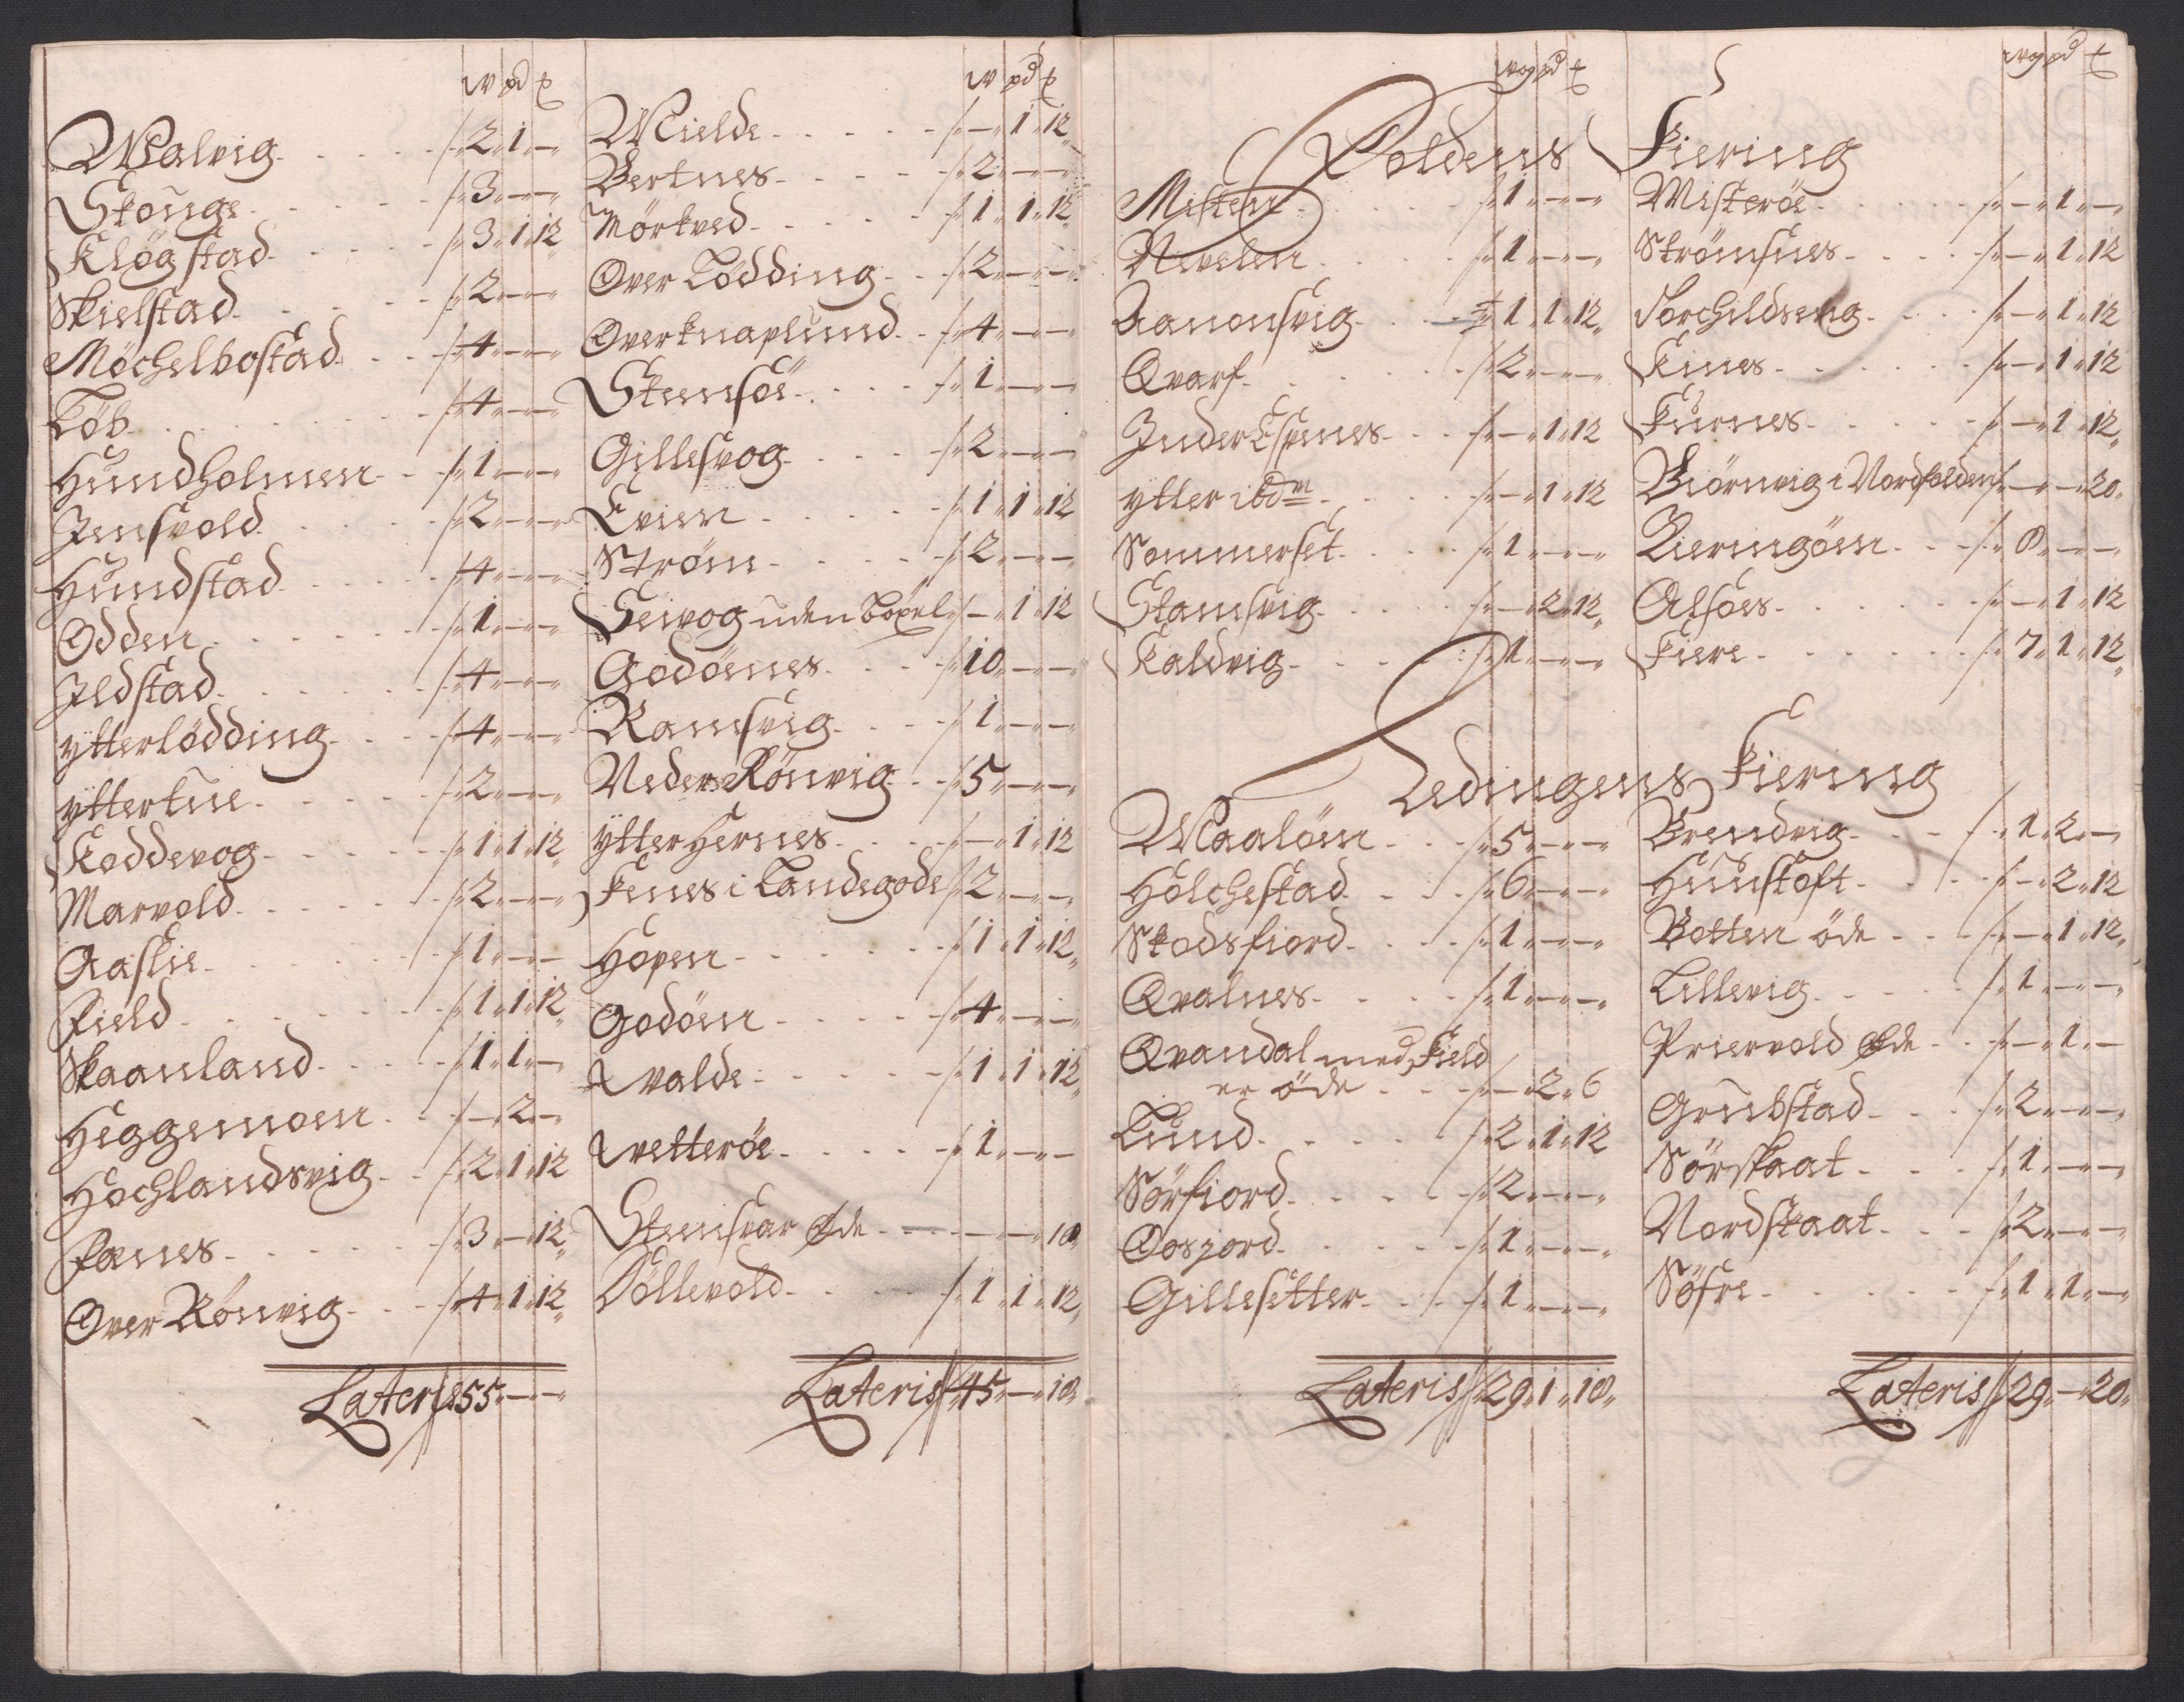 W pd ℔
Walvig - - - - - 2 „ 1 „ —
Skonge - - - - - 3 „ — „ —
Kløgstad - - - - 3 „ 1 „ 12
Skielstad - - - - 2 „ — „ —
Möchelbostad - - 4 „ — „ —
Løb - - - - - - 4 „ — „ —
Hundholmen - - 1 „ — „ —
Jensvold - - - - 2 „ — „ —
Hundstad - - - - 4 „ — „ —
Odden - - - - - 1 „ — „ —
Ildstad - - - - - 4 „ — „ —
ytterlødding - - - 4 „ — „ —
yttertue - - - - 2 „ — „ —
Koddevog - - - - 1 „ 1 „ 12
Marvold - - - - 2 „ — „ —
Aaslie - - - - - 1 „ — „ —
Field - - - - - 1 „ 1 „ 12
Skaanland - - - 1 „ 1 „ —
Heggemoen - - - — „ 2 „ —
Hochlandsvig - - 2 „ 1 „ 12
Fanes - - - - - 3 „ — „ 12
Over Rönvig - - - 4 „ 1 „ 12
Lateris 55 „ — „ —
W pd ℔
Mielde - - - - - — „ 1 „ 12
Bertnes - - - - 2 „ — „ —
Mörkved - - - - 1 „ 1 „ 12
Over Lödding - - 2 „ — „ —
Over knaplund - - 4 „ — „ —
Stensöe - - - - 1 „ — „ —
Gillesvog - - - - 2 „ — „ —
Evien - - - - - 1 „ 1 „ 12
Strøm - - - - - 2 „ — „ —
Seivog uden Löpel — „ 1 „ 12
Godönes - - - - 10 „ — „ —
Ramsvig - - - - 1 „ — „ —
Neder Rönvig - - 5 „ — „ —
ytter Hernes - - - — „ 1 „ 12
Fenes i Landegode 2 „ — „ —
Hopen - - - - - 1 „ 1 „ 12
Godöen - - - - 4 „ — „ —
Walde - - - - - 1 „ 1 „ 12
Wetteröe - - - - 1 „ — „ —
Stensvar Øde - - - — „ — „ 18
Döllevold - - - - 1 „ 1 „ 12
Lateris 45 „ — „ 18
wog pd ℔
wog pd ℔
Foldens Fiering
Misten - - - - - 1 „ — „ —
Nevelen - - - - 1 „ — „ —
Aanonsvig - - - 1 „ 1 „ 12
Qvarf - - - - - 2 „ — „ —
Inder Espenes - - — „ 1 „ 12
ytter ibdm - - - - — „ 1 „ 12
Sommerset - - - 1 „ — „ —
Stamsvig - - - - — „ 2 „ 12
Kaldvig - - - - 1 „ — „ —
Misteröe - - - - — „ 1 „ —
Strömsnes - - - - — „ 1 „ 12
Torchildseng - - - — „ 1 „ 12
Kines - - - - - — „ 1 „ 12
Furnes - - - - - — „ 1 „ 12
Biörnvig i Nordfolden — „ — „ 20
Kieringöen - - - 8 „ — „ —
Alsöes - - - - - — „ 1 „ 12
Fiere - - - - - 7 „ 1 „ 12
Lødingens Fiering
Maalöen - - - 5 „ — „ —
Holchestad - - - 6 „ — „ —
Skodsfiord - - - 1 „ — „ —
Qvalnes - - - - 1 „ — „ —
Qvandal med Field
er öde - - - — „ 2 „ 6
Lund - - - - - 2 „ 1 „ 12
Sörfiord - - - - 2 „ — „ —
Oosjord - - - - 1 „ — „ —
Gillesetter - - - 1 „ — „ —
Lateris 29 „ 1 „ 18
Brendvig - - - - 1 „ 2 „ —
Hunstoft - - - - — „ 2 „ 12
Botten öde - - - — „ 1 „ 12
Lillevig - - - - 1 „ — „ —
Priervold Øde - - — „ 1 „ —
Grubstad - - - 2 „ — „ —
Sörskaat - - - 1 „ — „ —
Nordskaat - - - 2 „ — „ —
Söfre - - - - - 1 „ 1 „ —
Lateris 29 „ — „ 20